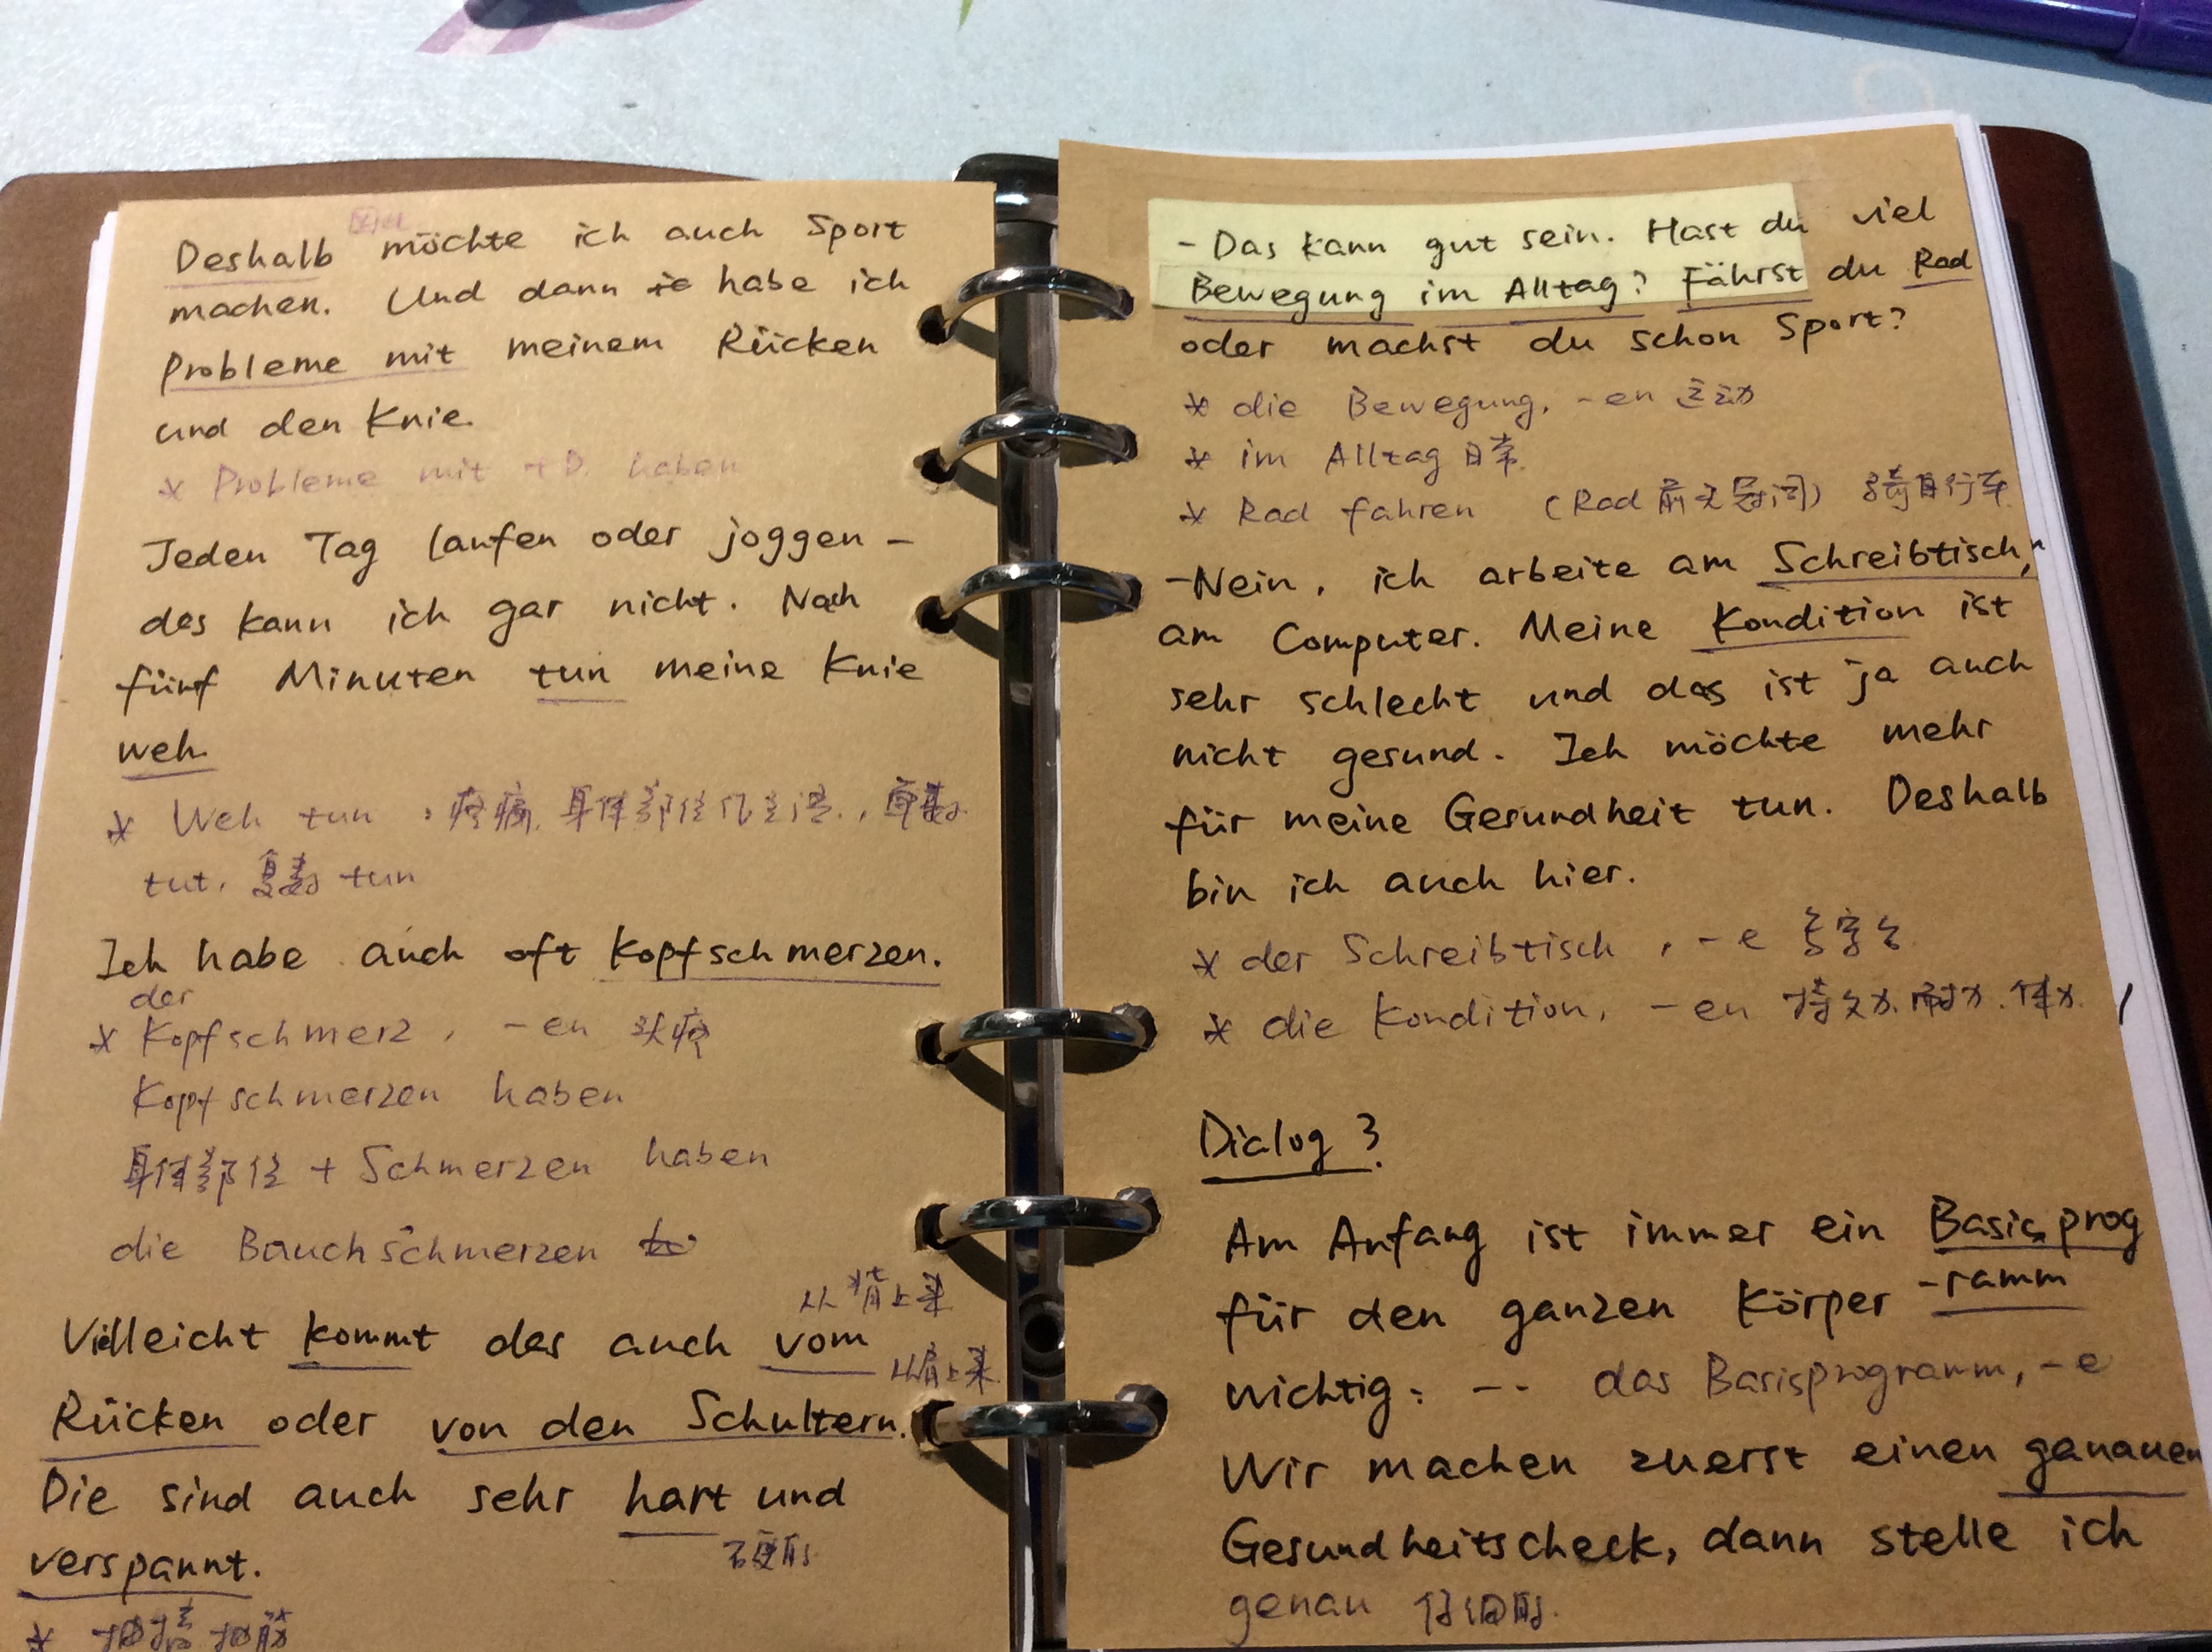 Deshalb möchte ich auch Sport
machen. Und dann habe ich
Probleme mit meinem Rücken
und den Knie.
* Probleme mit +D. haben
Jeden Tag laufen oder joggen -
das kann ich gar nicht. Nach
fünf Minuten tun meine Knie
weh.
* Weh tun : 疼痛. 身体部位作主语., 单数
tut. 复数 tun
Ich habe auch oft Kopfschmerzen.
der
* Kopfschmerz, -en 头疼
Kopfschmerzen haben
身体部位 + Schmerzen haben
die Bauchschmerzen
从背上来
Vielleicht kommt das auch vom
从肩上来
Rücken oder von den Schultern.
Die sind auch sehr hart und
硬的
verspannt.
*
- Das kann gut sein. Hast du viel
Bewegung im Alltag? Fährst du Rad
oder machst du schon Sport?
* die Bewegung, -en 运动
* im Alltag 日常
* Rad fahren (Rad 前无冠词) 骑自行车
-Nein, ich arbeite am Schreibtisch,
am Computer. Meine Kondition ist
sehr schlecht und das ist ja auch
nicht gesund. Ich möchte mehr
für meine Gesundheit tun. Deshalb
bin ich auch hier.
* der Schreibtisch, -e 写字台
* die Kondition, -en 持久力. 耐力. 体力.
Dialog 3
Am Anfang ist immer ein Basisprog
für den ganzen Körper -ramm
wichtig: -- das Basisprogramm, -e
Wir machen zuerst einen ganauen
Gesundheitscheck, dann stelle ich
genau 仔细的.